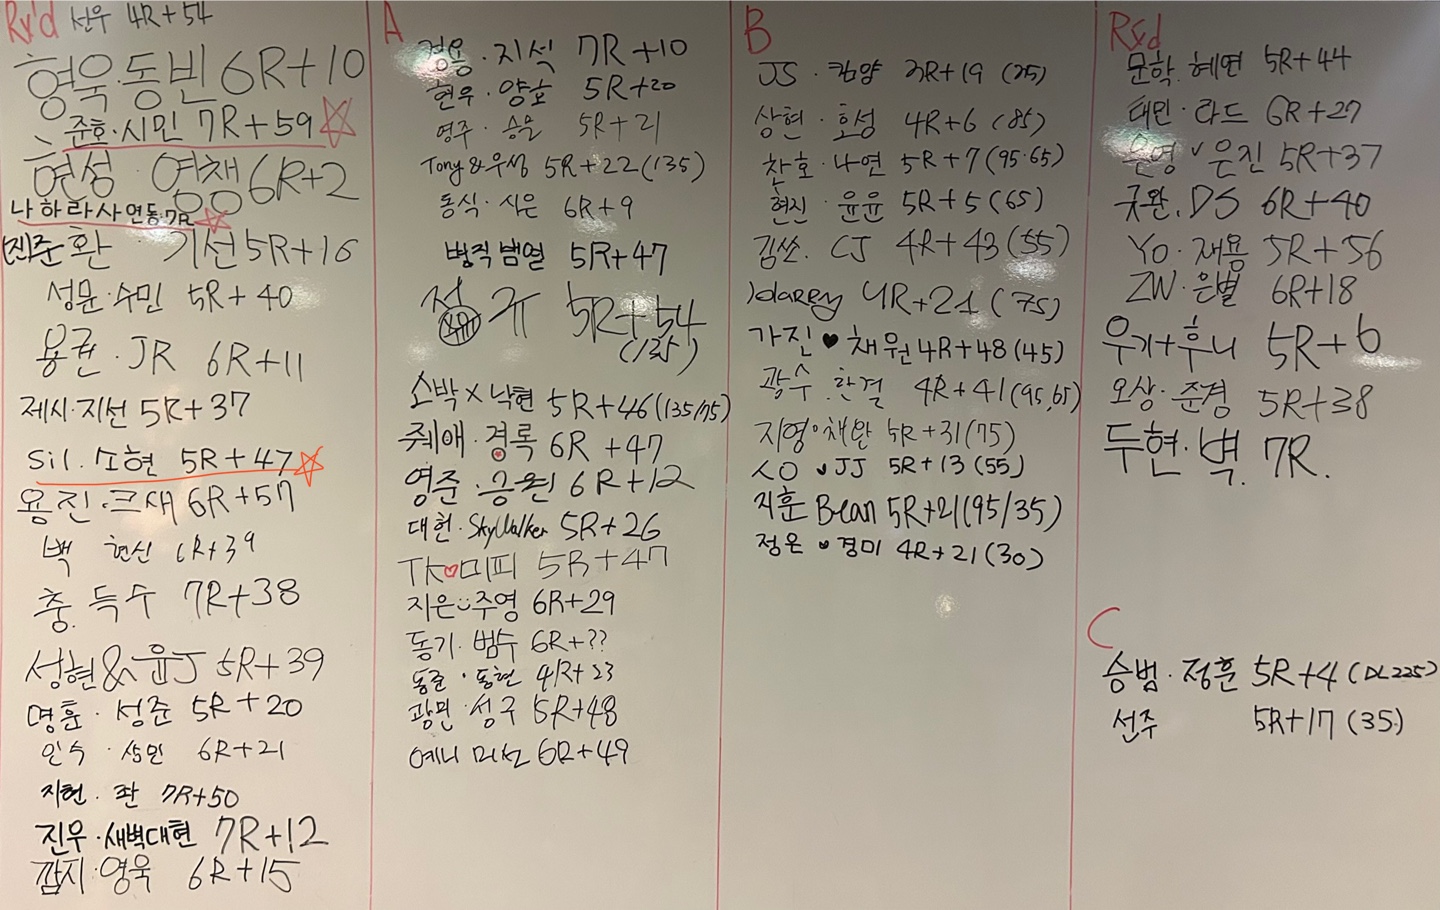 Rx'd 선우 4R+54
형욱.동빈 6R+10
준호.시민 7R+59
현성 영챙 6R+2
나하라사 연동 7R
(진준환 기선 5R+16
성문.수민 5R+40
용권.JR 6R+11
제시.지선 5R+37
Sil.소현 5R+47
용진.크새 6R+57
백 현신 6R+39
충.득수 7R+38
성현&윤J 5R+39
명훈.성준 5R+20
인수.상민 6R+21
지헌.환 7R+50
진우.새벽대현 7R+12
깜지.영욱 6R+15
A
경용.지석 7R+10
현우.양호 5R+20
영주.승율 5R+21
Tony&우성 5R+22(135)
동식.시은 6R+9
병직범열 5R+47
정규 5R+54
(135)
소박x낙현 5R+46(135/75)
줴애.경록 6R+47
영준.승원 6R+12
대헌.SkyWalker 5R+26
TK♡미피 5R+47
지은☺주영 6R+29
동기.범수 6R+??
동준.동현 4R+23
광민.성구 5R+48
예니 미선 6R+49
B
JS.캄양 3R+19 (25)
상현.효성 4R+6 (85)
찬호.나연 5R+7(95.65)
현진.윤윤 5R+5(65)
김쏘.CJ 4R+43(55)
4R+21(75)
가진♥채원 4R+48(45)
광수.한결 4R+41(95,65)
지영 채완 5R+31(75)
JJ 5R+13(55)
지훈 Bean 5R+21(95/35)
정은 경미 4R+21(30)
Rxd
문학.혜연 5R+44
태민.라드 6R+27
은영 은진 5R+37
굿환.DS 6R+40
Yo.재용 5R+56
ZW.은별 6R+18
우기+후니 5R+6
오상.준경 5R+38
두현.벽. 7R.
C
승범.정훈 5R+4(DL225)
선주 5R+17(35)